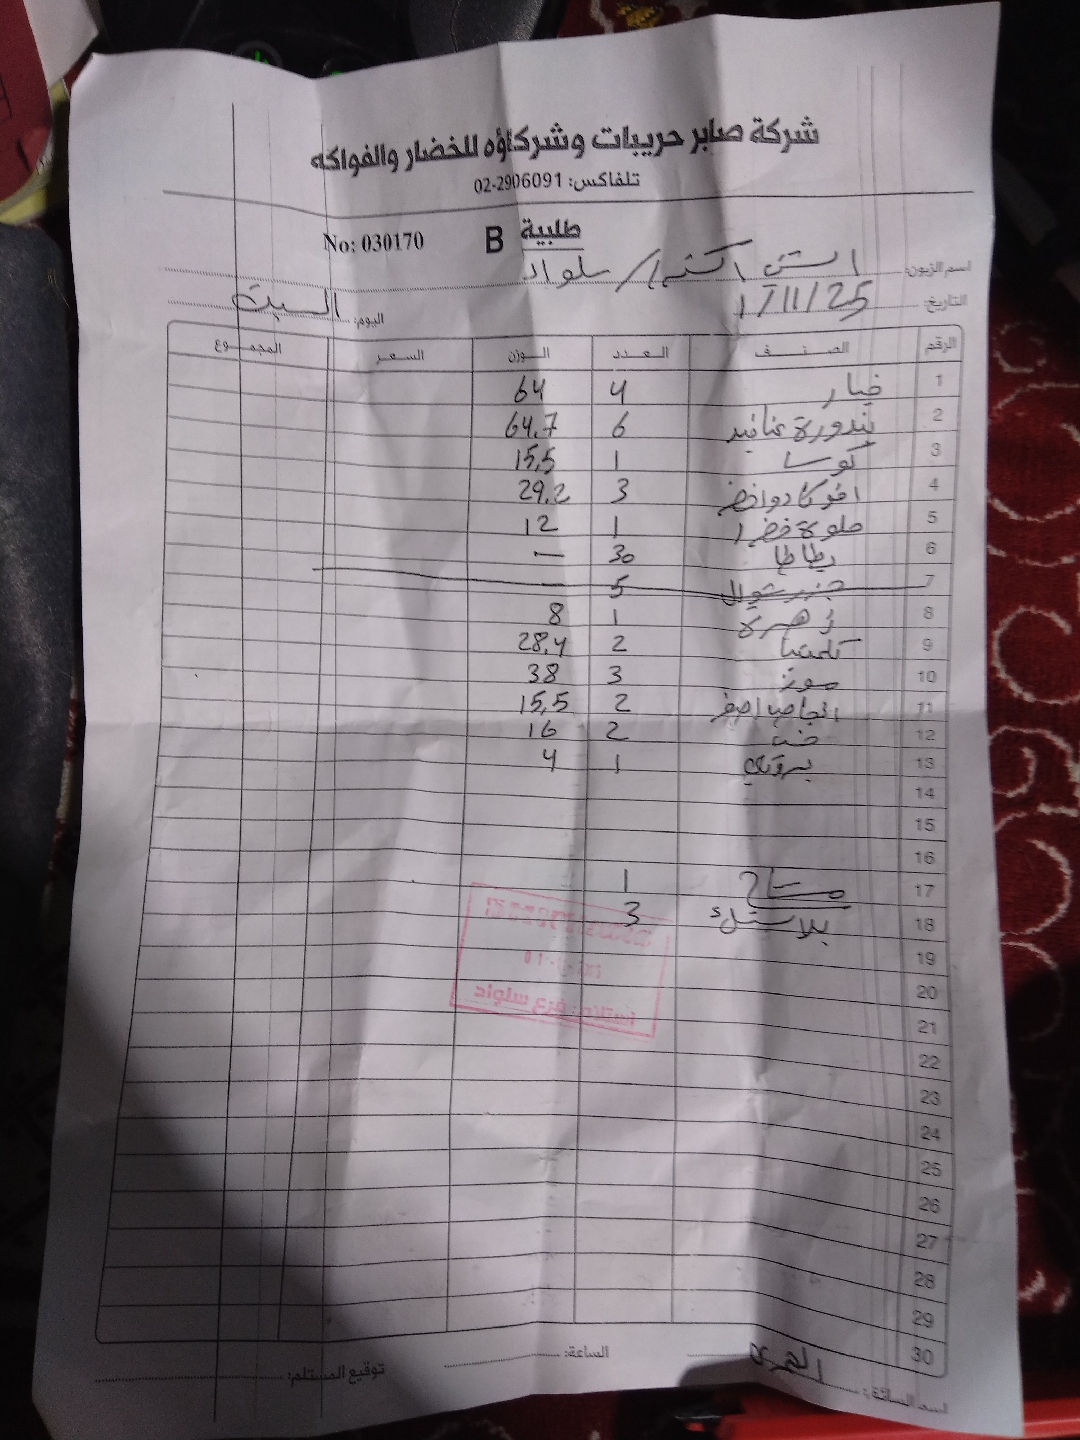 شركة صابر حريبات وشركاؤه للخضار والفواكه
تلفاكس: 02-2906091
No: 030170 B طلبية
اسم الزبون: / سلواد
التاريخ: 1/11/25 اليوم: السبت
الرقم الصنف العدد الوزن السعر المجموع
1 خيار 4 64
2 بندورة عناقيد 6 64,7
3 كوسا 1 15,5
4 افوكادو اخضر 3 29,2
5 حلوة خضرا 1 12
6 بطاطا 30 —
7 جزر شوال 5 —
8 زهرة 1 8
9 كلمنتينا 2 28,4
10 موز 3 38
11 انجاص اصفر 2 15,5
12 خس 2 16
13 1 4
14
15
16
17 مشتاح 1
18 بلاستك 3
19
20
21
22
23
24
25
26
27
28
29
30
اسم السائق: الساعة: توقيع المستلم: